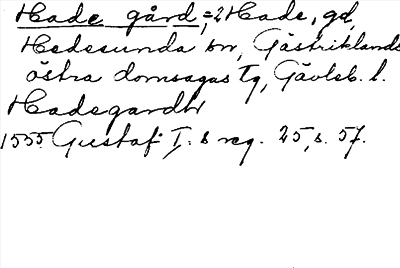 Hade gård, = 2 Hade, gd,
Hedesunda sn, Gästriklands
östra domsagas tg, Gävleb. l.
Hadegardh
1555 Gustaf I:s reg. 25, s. 57.